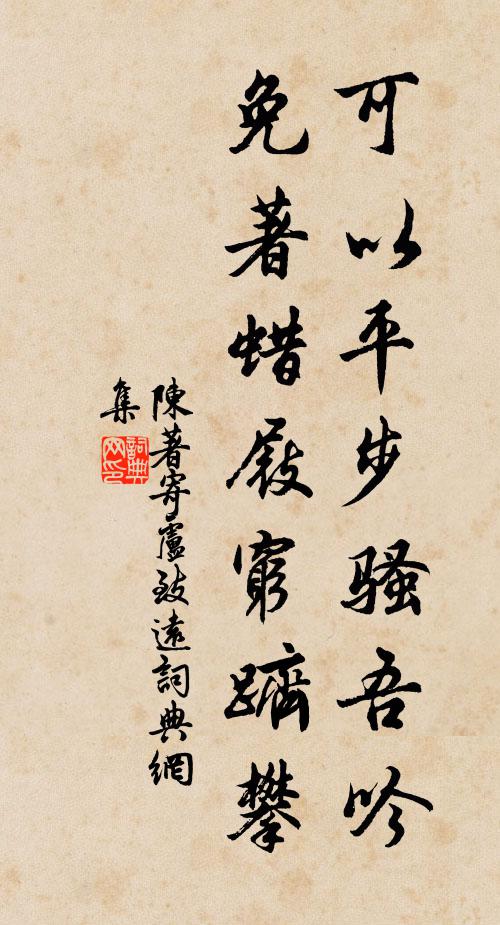 可以平步騷吾吟
免著蜡屐窮躋攀
陳著寄盧致遠詞典網
集
詞典
网印